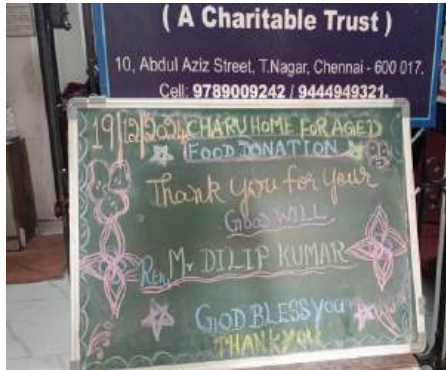 ( A Charitable Trust )
10, Abdul Aziz Street, T.Nagar, Chennai - 600 017.
Cell: 9789009242 / 9444949321.
19/12/2024 CHARU HOME FOR AGED
FOOD DONATION
Thank you for your
Good WILL
Mr DILIP KUMAR
GOD BLESS YOU
THANK YOU